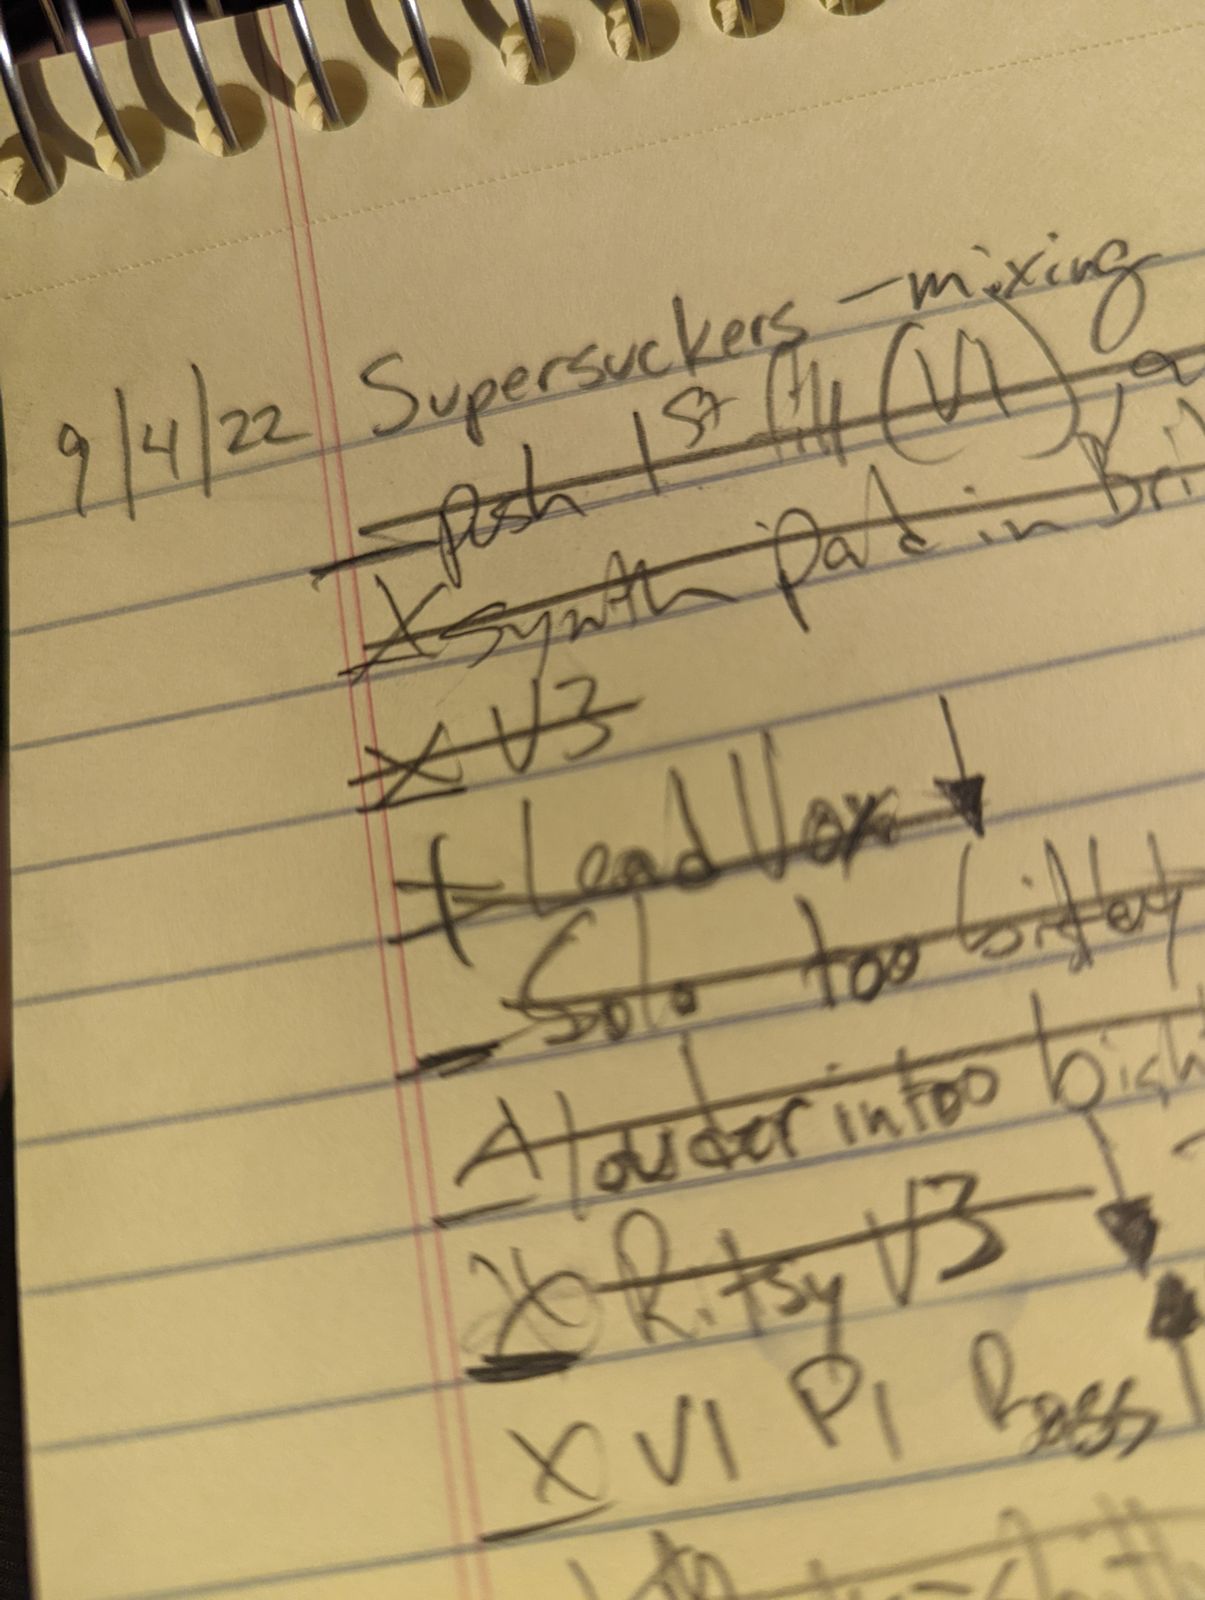 9/4/22 Supersuckers - mixing
- push 1st fill (V1)
X synth pad in Bri
X V3
+ Lead Vox ↓
- Solo too
A louder in too
X Ritsy V3
X V1 P1 Bass ↑